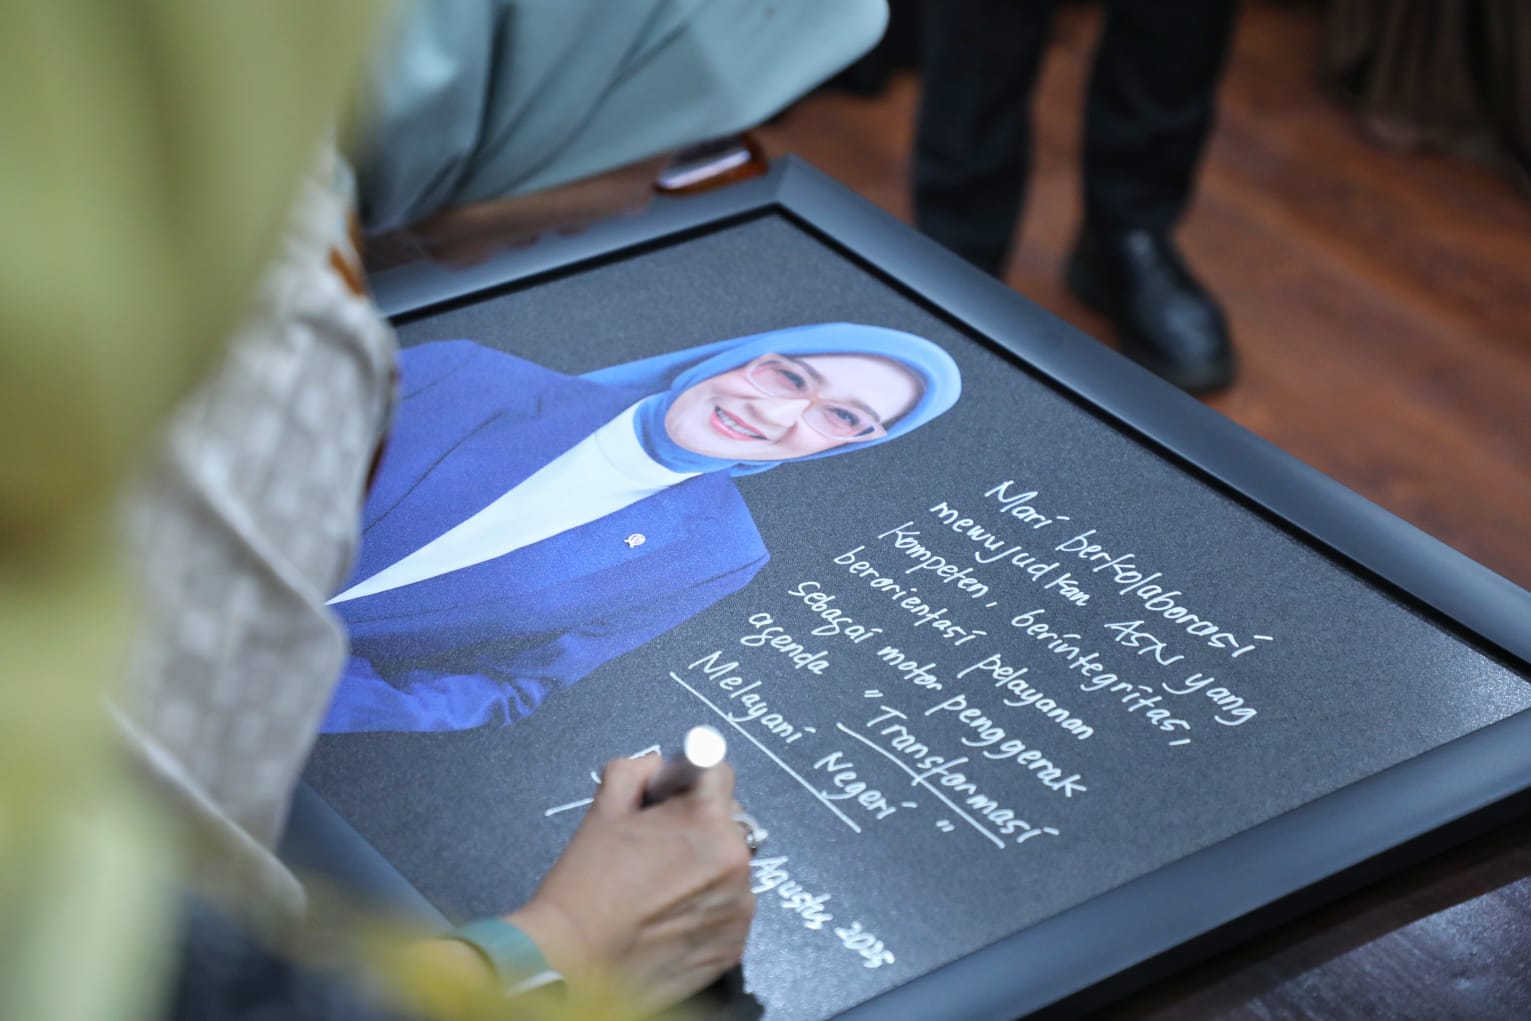 Mari berkolaborasi
mewujudkan ASN yang
Kompeten, berintegritas,
berorientasi pelayanan
sebagai motor penggerak
agenda "Transformasi
Melayani Negeri"
Agustus 2025